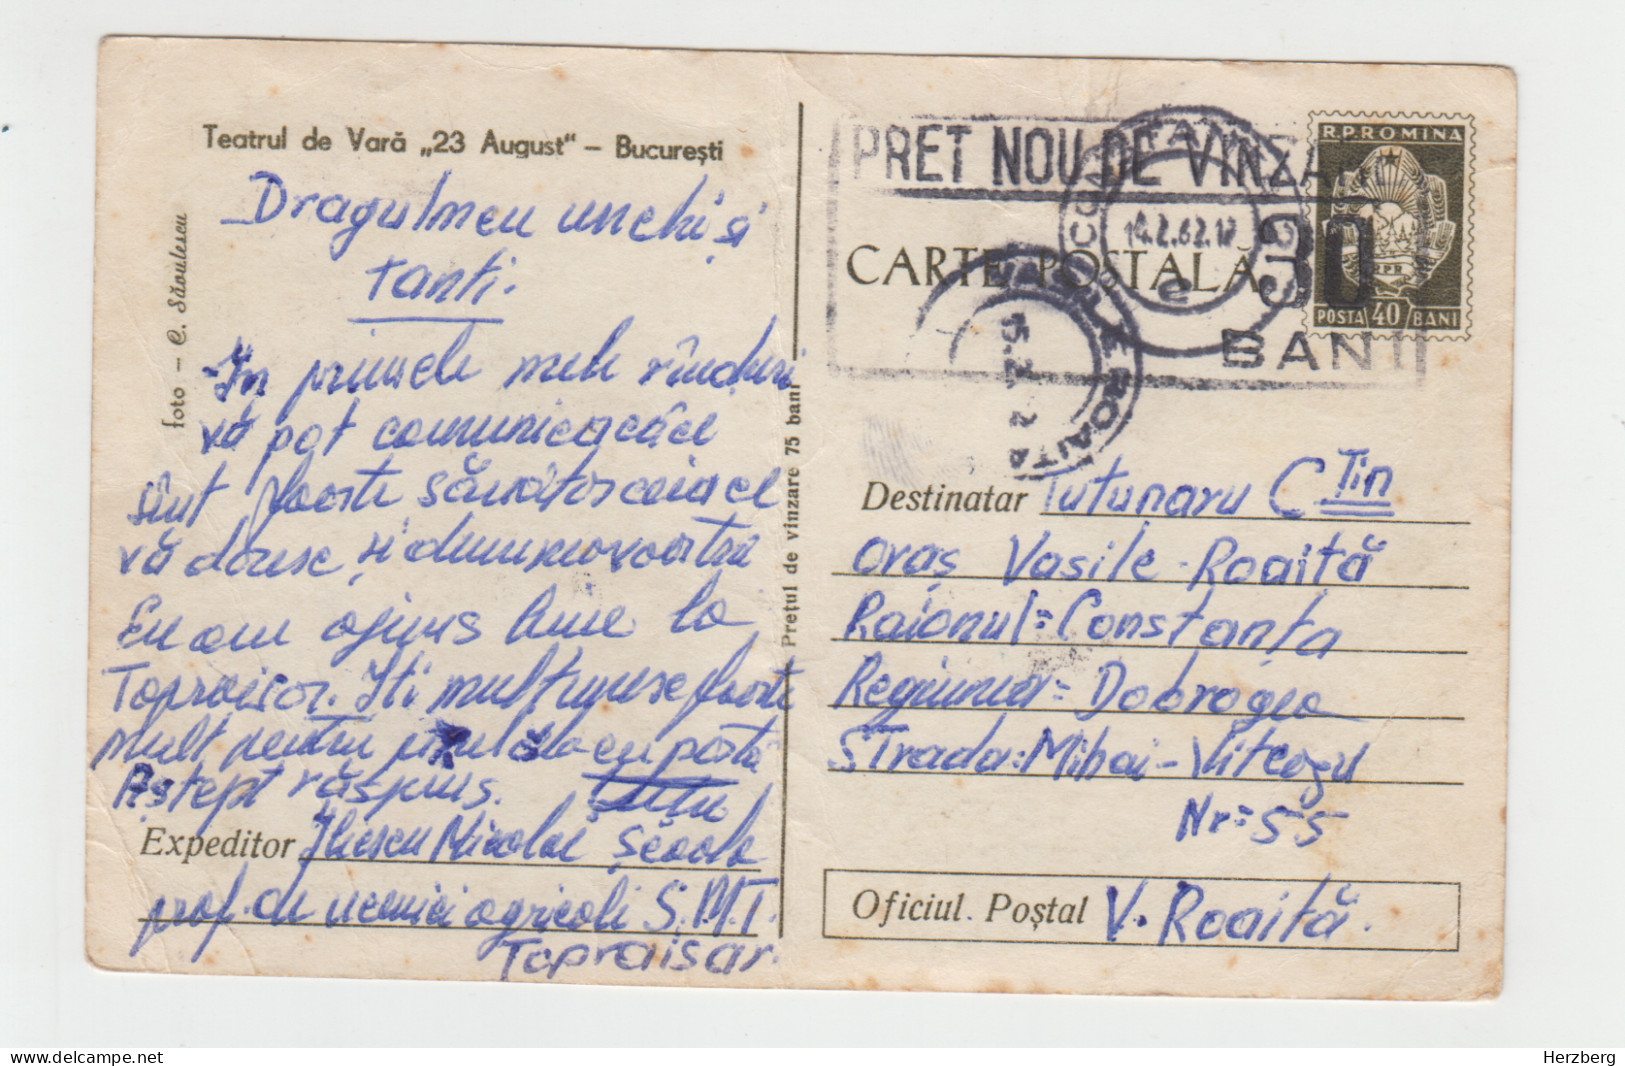 Teatrul de Vară „23 August“ – București
foto – C. Săvulescu
Dragul meu unchi și
tanti.
In primele mele rînduri
vă pot comunica că
sînt foarte sănătos ceia ce
vă doresc și dumneavoastră
Eu am ajuns bine la
Topraisar. Iti mulțumesc foarte
mult pentru
Astept răspuns.
Expeditor Iliescu Nicolae Școala
prof. de ucenici agricoli S.M.T.
Topraisar.
Prețul de vînzare 75 bani
PRET NOU DE VINZARE
30
BANI
R.P.ROMINA
RPR
POSTA 40 BANI
CONSTANTA
14.2.62.12
VASILE ROAITA
15.2. 2
CARTE POSTALĂ
Destinatar Tutunaru C Tin
Oraș Vasile-Roaită
Raionul=Constanța
Regiunea= Dobrogea
Strada:Mihai-Viteazu
Nr=55
Oficiul Poștal V. Roaită.
Herzberg